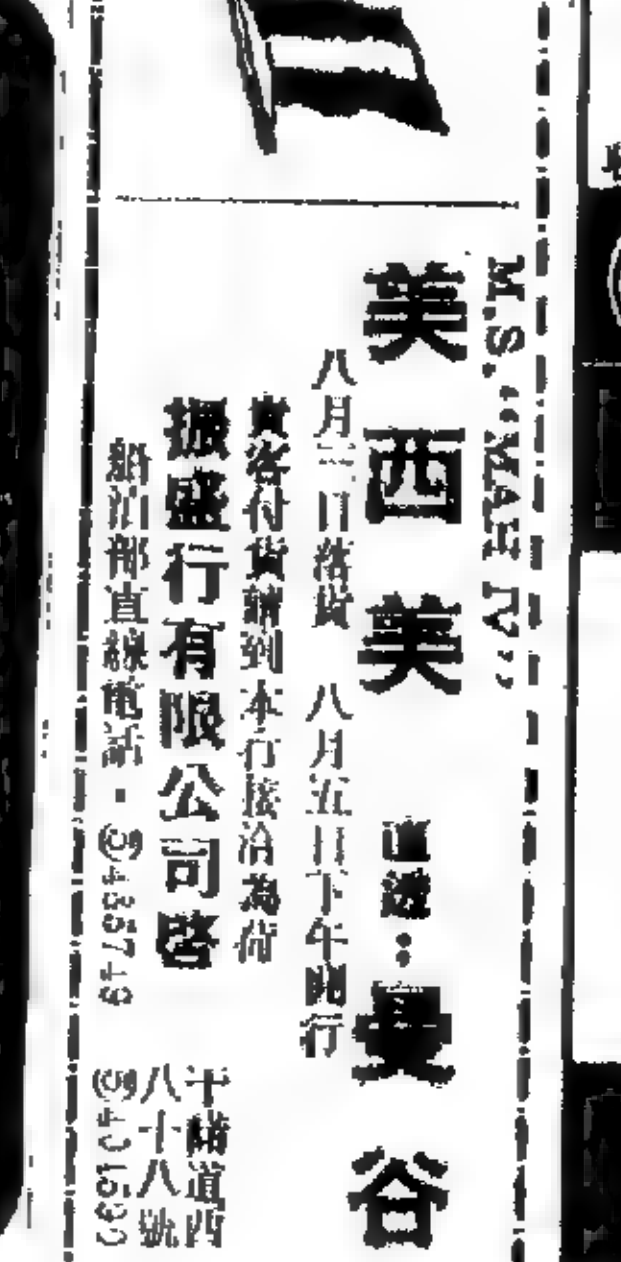 M.S. "MAH IV"
美西美 直透:曼谷
八月三日落貨 八月五日下午開行
貴客付貨請到本行接洽為荷
振盛行有限公司啓
干諾道西
八十八號
船泊部直線電話・